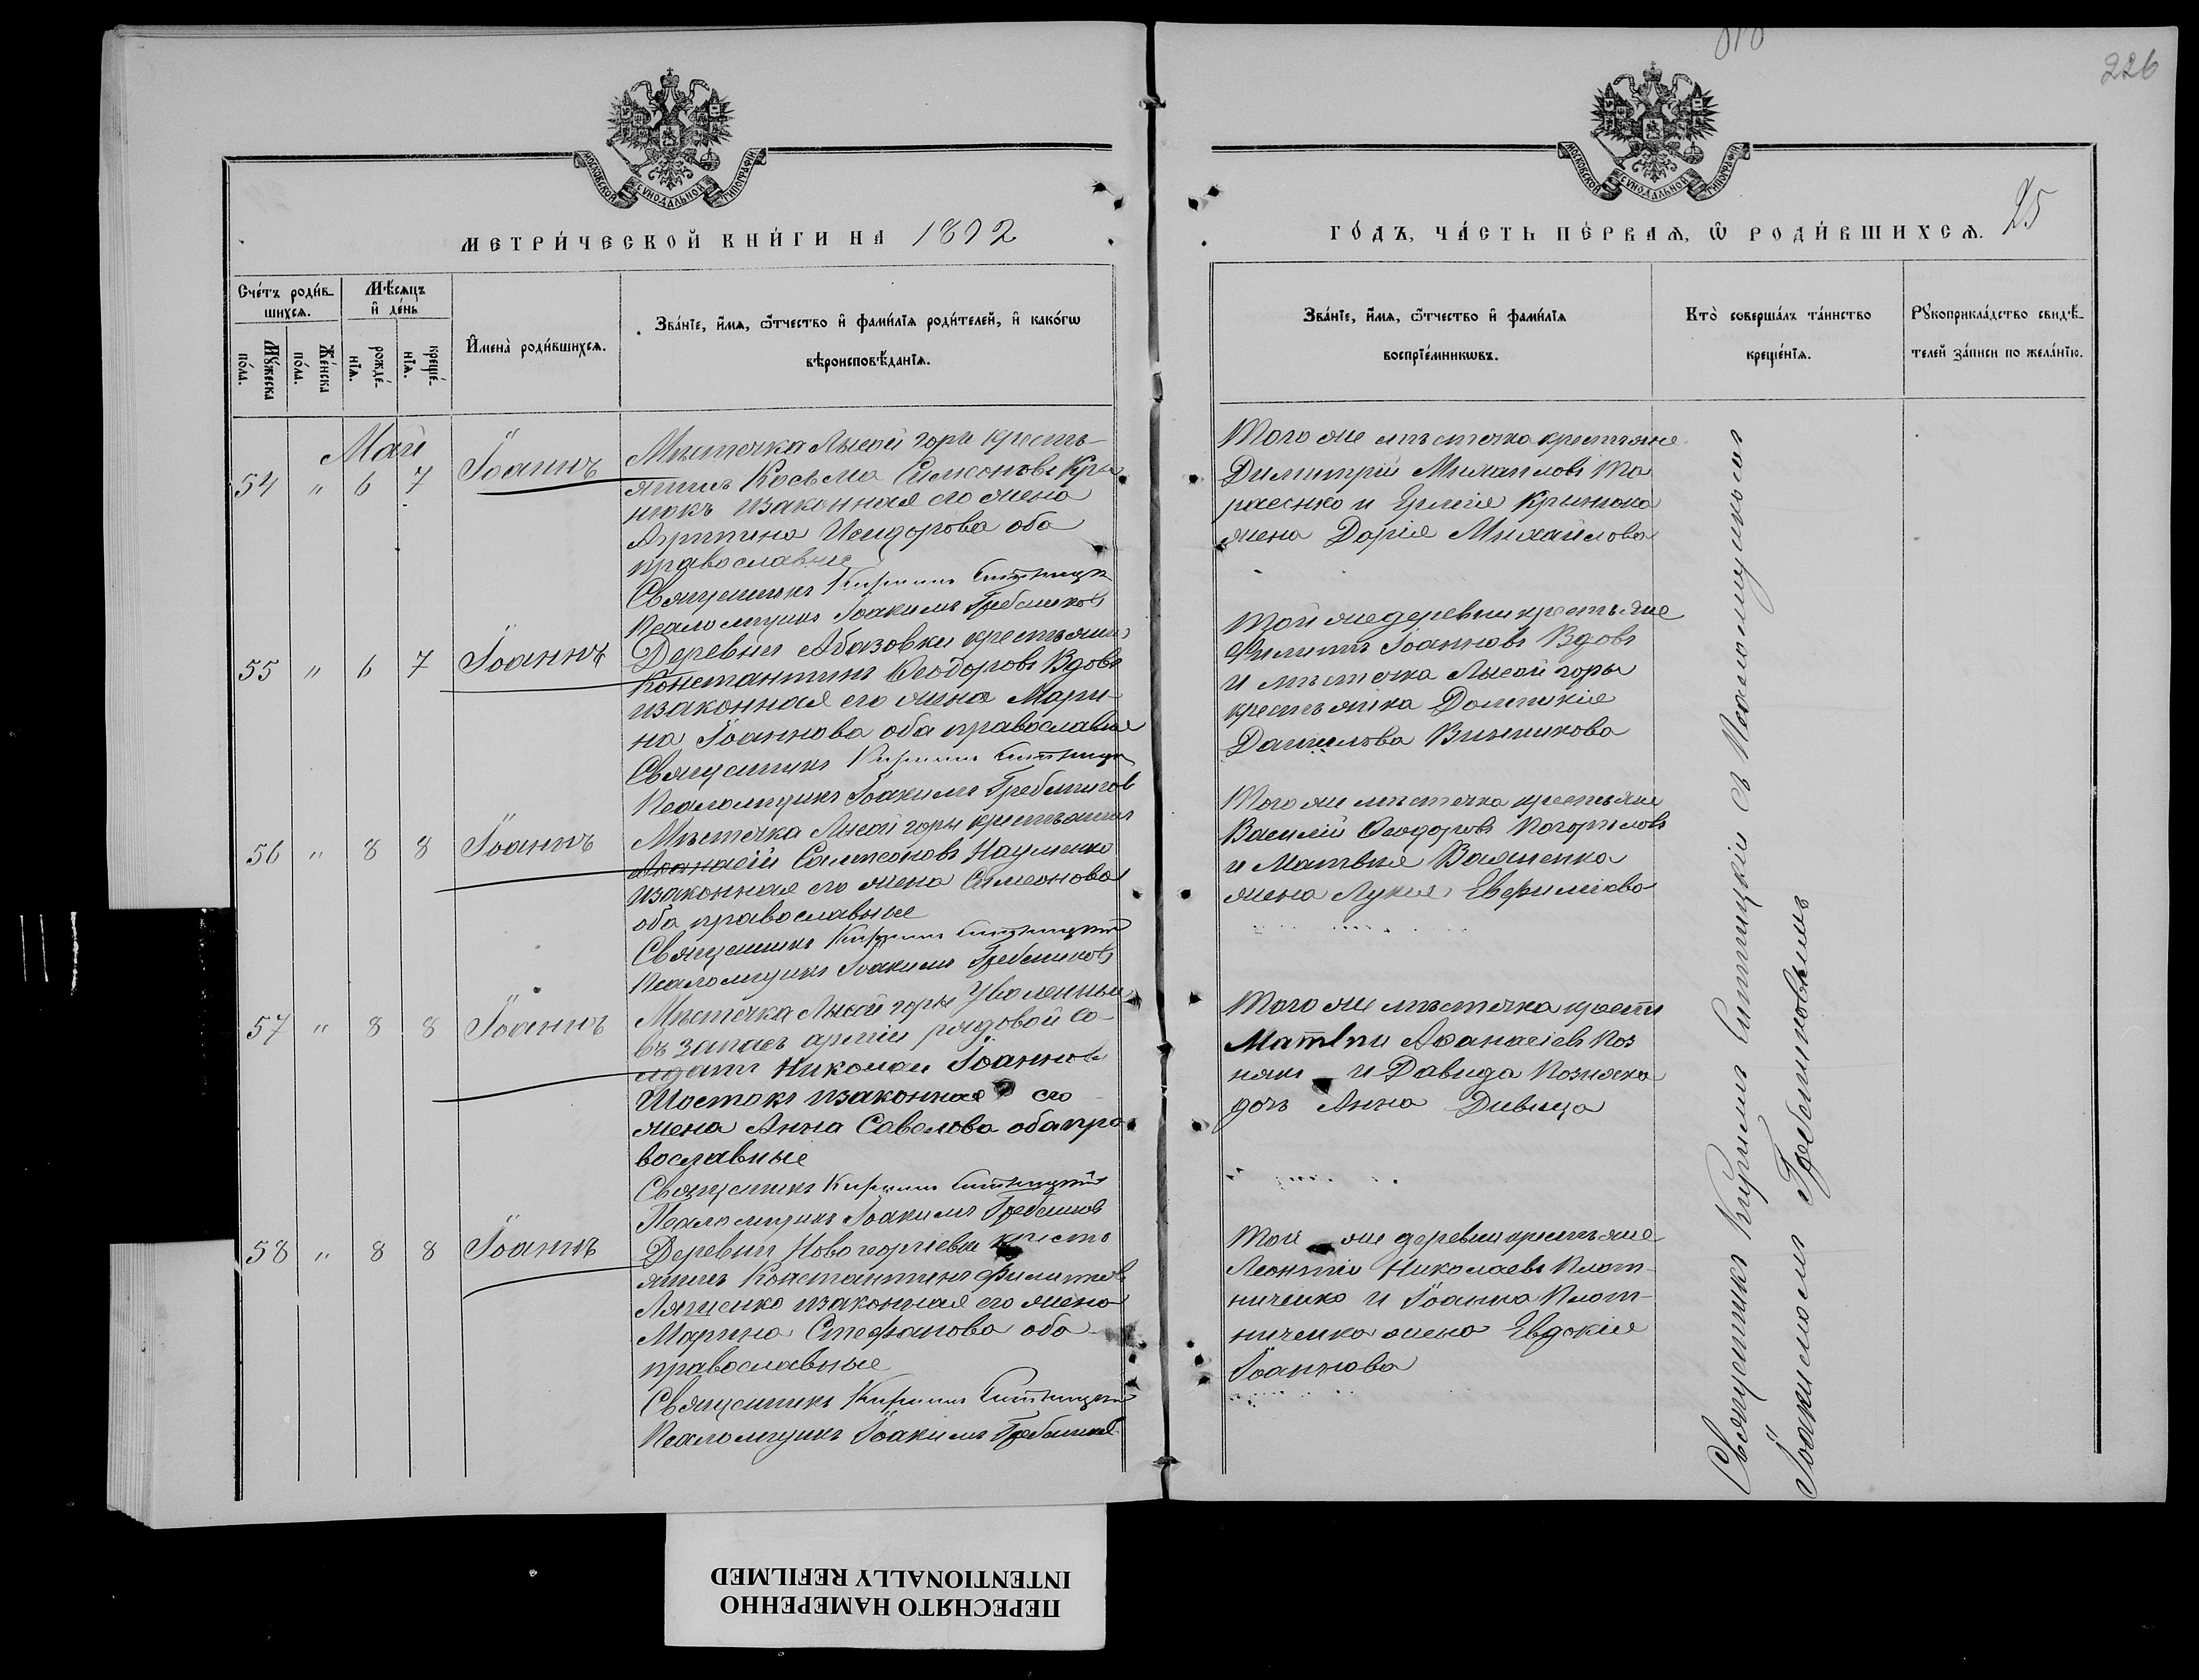 226
МОСКОВСКОЙ СѴНОДАЛЬНОЙ ТИПОГРАФІИ
МОСКОВСКОЙ СѴНОДАЛЬНОЙ ТИПОГРАФІИ
МЕТРИ́ЧЕСКОЙ КНИ́ГИ НА 1892
ГО́ДЪ, ЧА́СТЬ ПЕ́РВАЯ, Ѡ РОДИ́ВШИХСЯ. 25
Сче́тъ роди́в-
шихся.
Му́жеска
по́ла.
Же́нска
по́ла.
Мѣ́сяцъ
и де́нь
рожде́-
нїя.
креще́-
нїя.
Имена̀ роди́вшихся.
Зва́нїе, и́мя, ѻ́тчество и фами́лїя роди́телей, и како́гѡ
вѣроисповѣ́данїя.
Зва́нїе, и́мя, ѻ́тчество и фами́лїя
воспрїе́мникѡвъ.
Кто̀ соверша́лъ та́инство
креще́нїя.
Рꙋкоприкла́дство свидѣ́-
телей за́писи по жела́нїю.
Май
54 " 6 7 Іоаннъ
Мѣстечка Лысой горы кресть-
янинъ Косьма Симеоновъ Кры
нюкъ изаконная его жена
Агрипина Исидорова оба
православные
Священникъ Кириллъ Ситницкій
Псаломщикъ Іоакимъ Гребениковъ
Того же мѣстечка крестьяне
Димитрій Михаиловъ Та
расенко и Крынюка
жена Дарія Михайлова
55 " 6 7 Іоаннъ
Деревни Абазовки крестьянинъ
Константинъ Ѳеодоровъ Вдовъ
изаконная его жена Мари-
на Іоаннова оба православные
Священникъ Кириллъ Ситницкій
Псаломщикъ Іоакимъ Гребениковъ
Той же деревни крестьяне
Филиппъ Іоанновъ Вдовъ
и мѣстечка Лысой горы
крестьянка Домникія
Даниилова Винникова
56 " 8 8 Іоаннъ
Мѣстечка Лысой горы крестьянинъ
Аѳанасій Симеоновъ Науменко
изаконная его жена Симеонова
оба православные
Священникъ Кириллъ Ситницкій
Псаломщикъ Іоакимъ Гребениковъ
Того же мѣстечка крестьяне
Василій Ѳеодоровъ Погорѣловъ
и Матвѣя Важненка
жена Лукія Евфиміева
57 " 8 8 Іоаннъ
Мѣстечка Лысой горы Уволенный
въ запасъ арміи рядовой со-
лдатъ Николай Іоанновъ
Шостакъ изаконная его
жена Анна Савелова оба пра
вославные
Священникъ Кириллъ Ситницкій
Псаломщикъ Іоакимъ Гребениковъ
Того же мѣстечка крестя
Матвѣй Аѳанасіевъ Поз
някъ и Давида Позняка
дочь Анна Дивица
58 " 8 8 Іоаннъ
Деревни Новогеоргіевки кресть
янинъ Константинъ Филиповъ
Ляшенко изаконная его жена
Марина Стефанова оба
православные
Священникъ Кириллъ Ситницкій
Псаломщикъ Іоакимъ Гребениковъ
Той же деревни крестьяне
Леонтій Николаевъ Плот-
ниченко и Іоанна Плот-
ниченка жена Евдокія
Іоаннова
Священникъ Кириллъ Ситницкій съ Псаломщикомъ
Іоакимомъ Гребениковымъ
ПЕРЕСНЯТО НАМЕРЕННО
INTENTIONALLY REFILMED